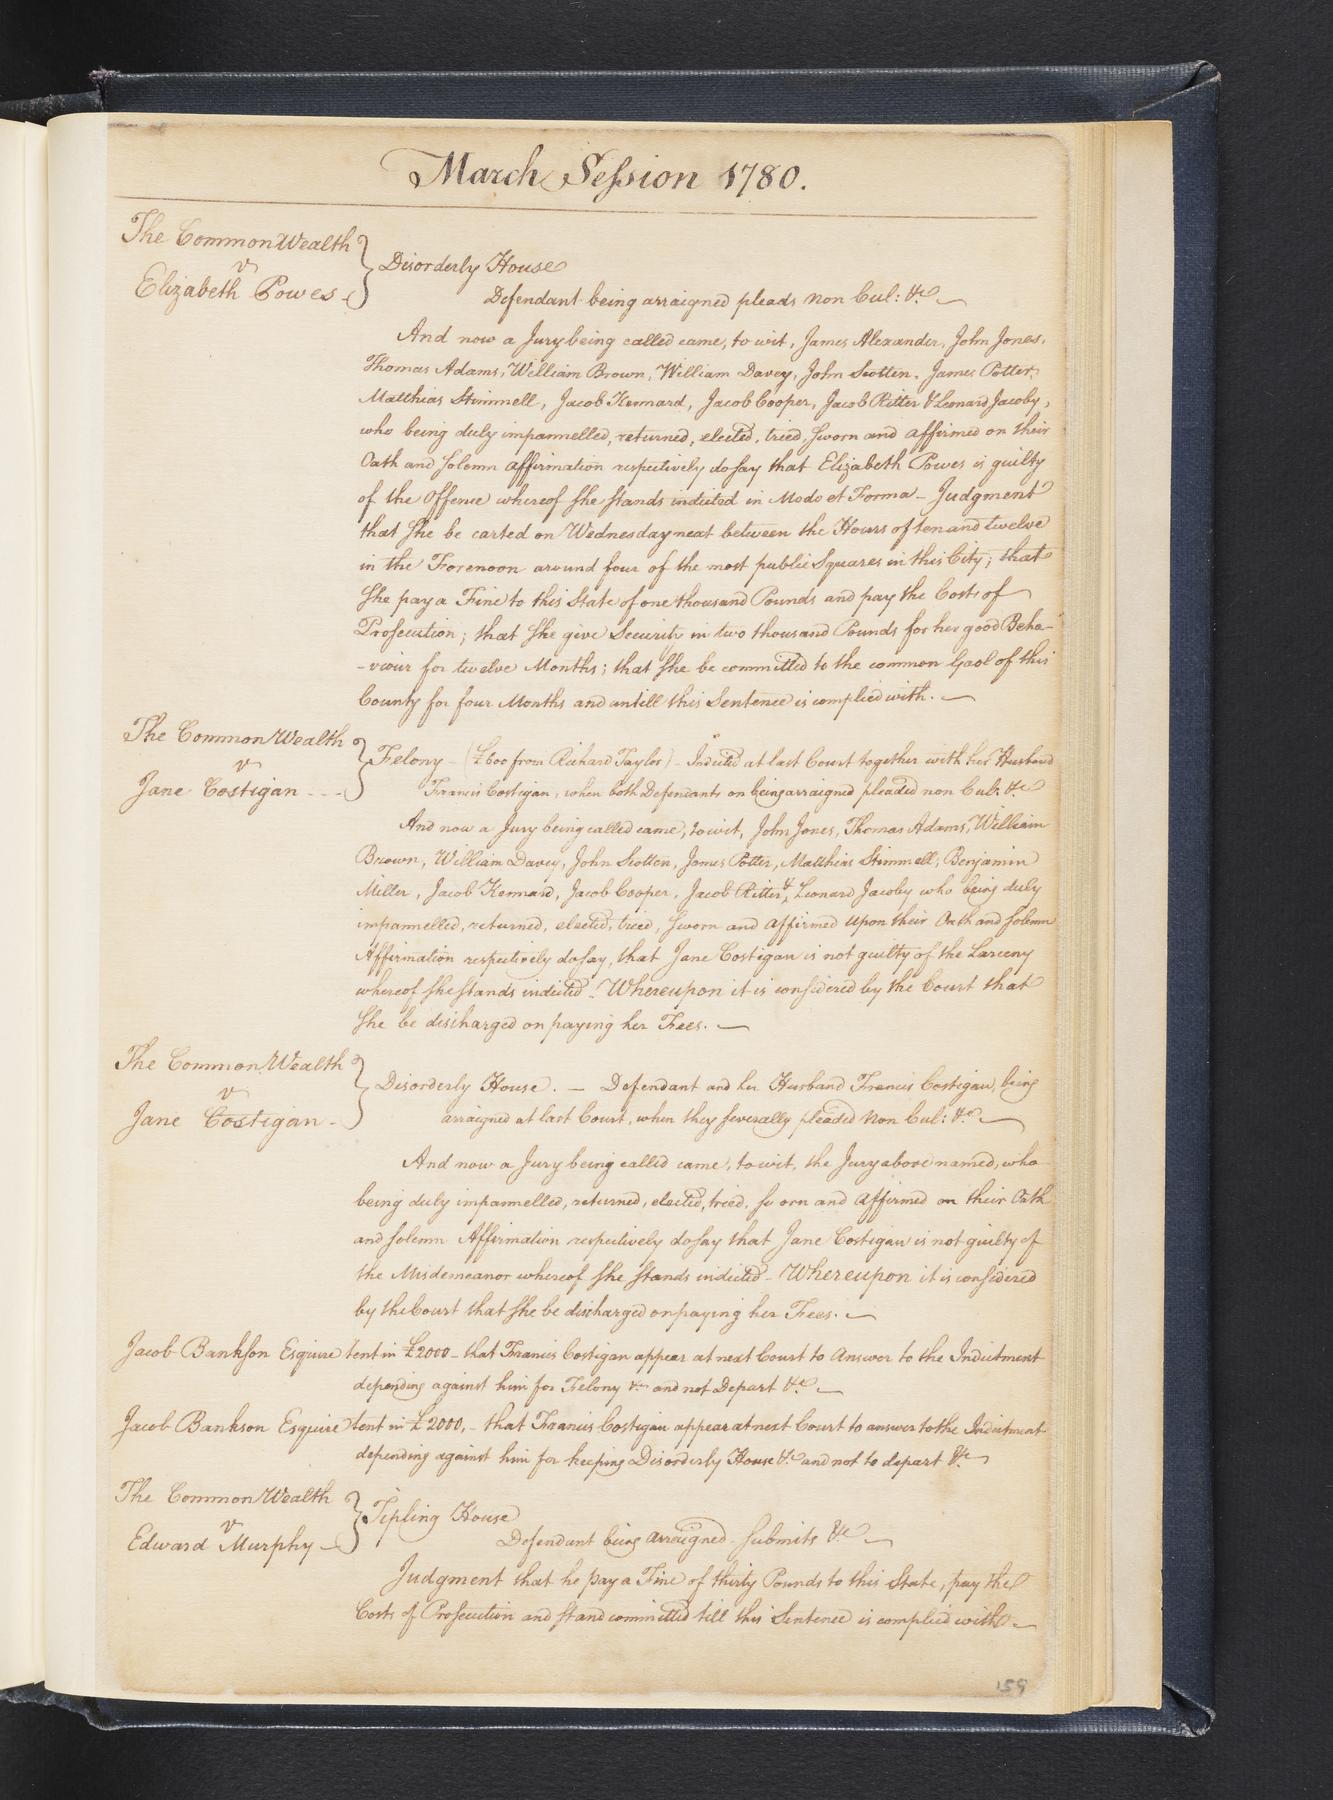 March Session 1780.
The CommonWealth
v
Elizabeth Powes
Disorderly House
Defendant being arraigned pleads non Cul: &c
And now a Jury being called came, to wit, James Alexander, John Jones,
Thomas Adams, William Brown, William Davey, John Scotten, James Potter,
Matthias Stimmell, Jacob Kennard, Jacob Cooper, Jacob Ritter & Leonard Jacoby,
who being duly impannelled, returned, elected, tried, sworn and affirmed on their
Oath and solemn affirmation respectively do say that Elizabeth Powes is guilty
of the Offence whereof she stands indicted in Modo et Forma - Judgment
that she be carted on Wednesday next between the Hours of ten and twelve
in the Forenoon around four of the most public Squares in this City; that
she pay a Fine to this State of one thousand Pounds and pay the Costs of
Prosecution; that she give Security in two thousand Pounds for her good Beha-
-viour for twelve Months; that she be committed to the common Gaol of this
County for four Months and untill this Sentence is complied with.
The CommonWealth
v
Jane Costigan
Felony - (£600 from Richard Taylor) - Indicted at last Court together with her Husband
Francis Costigan, when both Defendants on being arraigned pleaded non Cul: &c
And now a Jury being called came, to wit, John Jones, Thomas Adams, William
Brown, William Davey, John Scotten, James Potter, Matthias Stimmell, Benjamin
Miller, Jacob Kennard, Jacob Cooper, Jacob Ritter & Leonard Jacoby who being duly
impannelled, returned, elected, tried, sworn and affirmed upon their Oath and solemn
Affirmation respectively do say, that Jane Costigan is not guilty of the Larceny
whereof she stands indicted - Whereupon it is considered by the Court that
she be discharged on paying her Fees.
The CommonWealth
v
Jane Costigan
Disorderly House. - Defendant and her Husband Francis Costigan, being
arraigned at last Court, when they severally pleaded Non Cul: &c
And now a Jury being called came, to wit, the Jury above named, who
being duly impannelled, returned, elected, tried, sworn and affirmed on their Oath
and solemn Affirmation respectively do say that Jane Costigan is not guilty of
the Misdemeanor whereof she stands indicted - Whereupon it is considered
by the Court that she be discharged on paying her Fees.
Jacob Bankson Esquire tent in £2000 - that Francis Costigan appear at next Court to answer to the Indictment
depending against him for Felony &c and not Depart &c
Jacob Bankson Esquire tent in £2000, - that Francis Costigan appear at next Court to answer to the Indictment
depending against him for keeping Disorderly House &c and not to depart &c
The CommonWealth
v
Edward Murphy
Tipling House
Defendant being arraigned submits &c
Judgment that he pay a Fine of thirty Pounds to this State, pay the
Costs of Prosecution and stand committed till this Sentence is complied with.
159